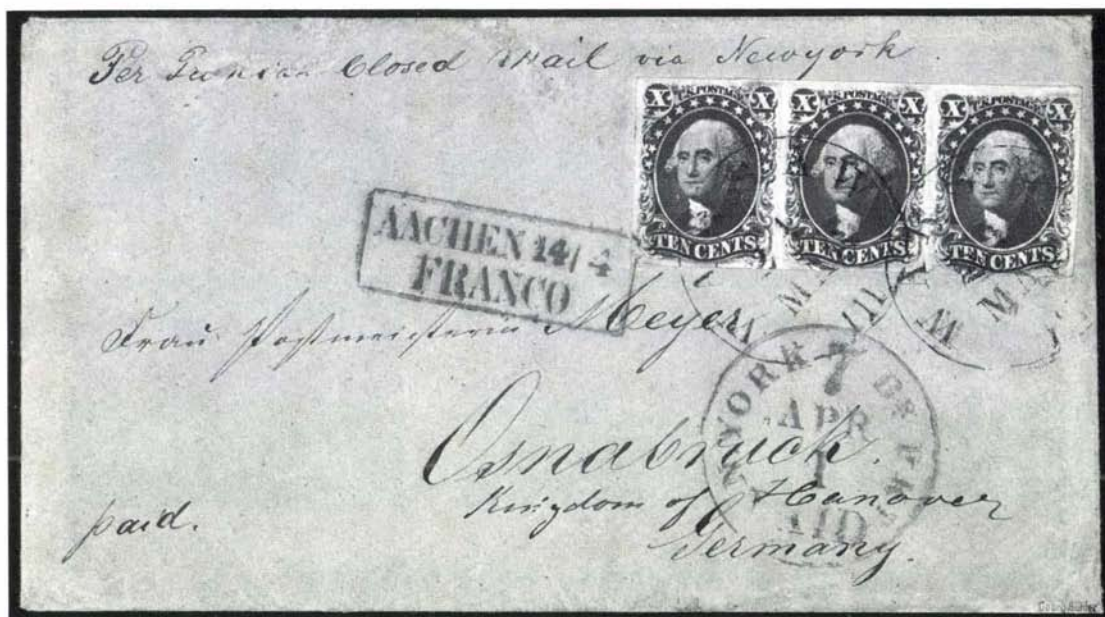 Per Prussian Closed Mail via Newyork.
X U.S. POSTAGE X
TEN CENTS
X U.S. POSTAGE X
TEN CENTS
X U.S. POSTAGE X
TEN CENTS
AACHEN 14/4
FRANCO
Frau Postmeisterin Meyer
YORK 7 BR PKT
APR
1
AID
Osnabruck.
Kingdom of Hanover
Germany.
paid.